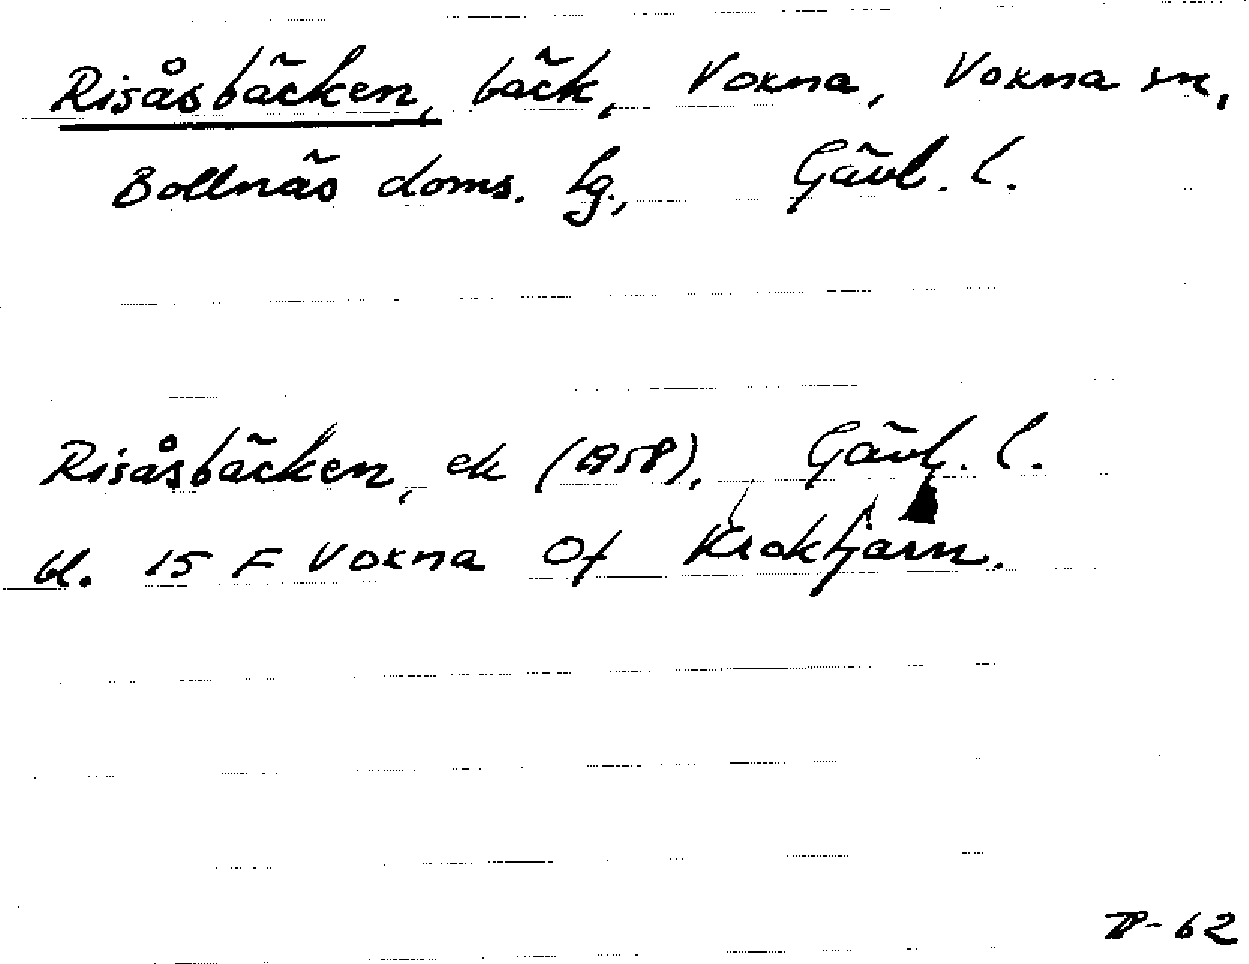 Risåsbäcken, bäck, Voxna, Voxna sn,
Bollnäs doms. lg., Gävl. l.
Risåsbäcken, ek (1958), Gävl. l.
bl. 15 F Voxna Of Kroktjärn.
62